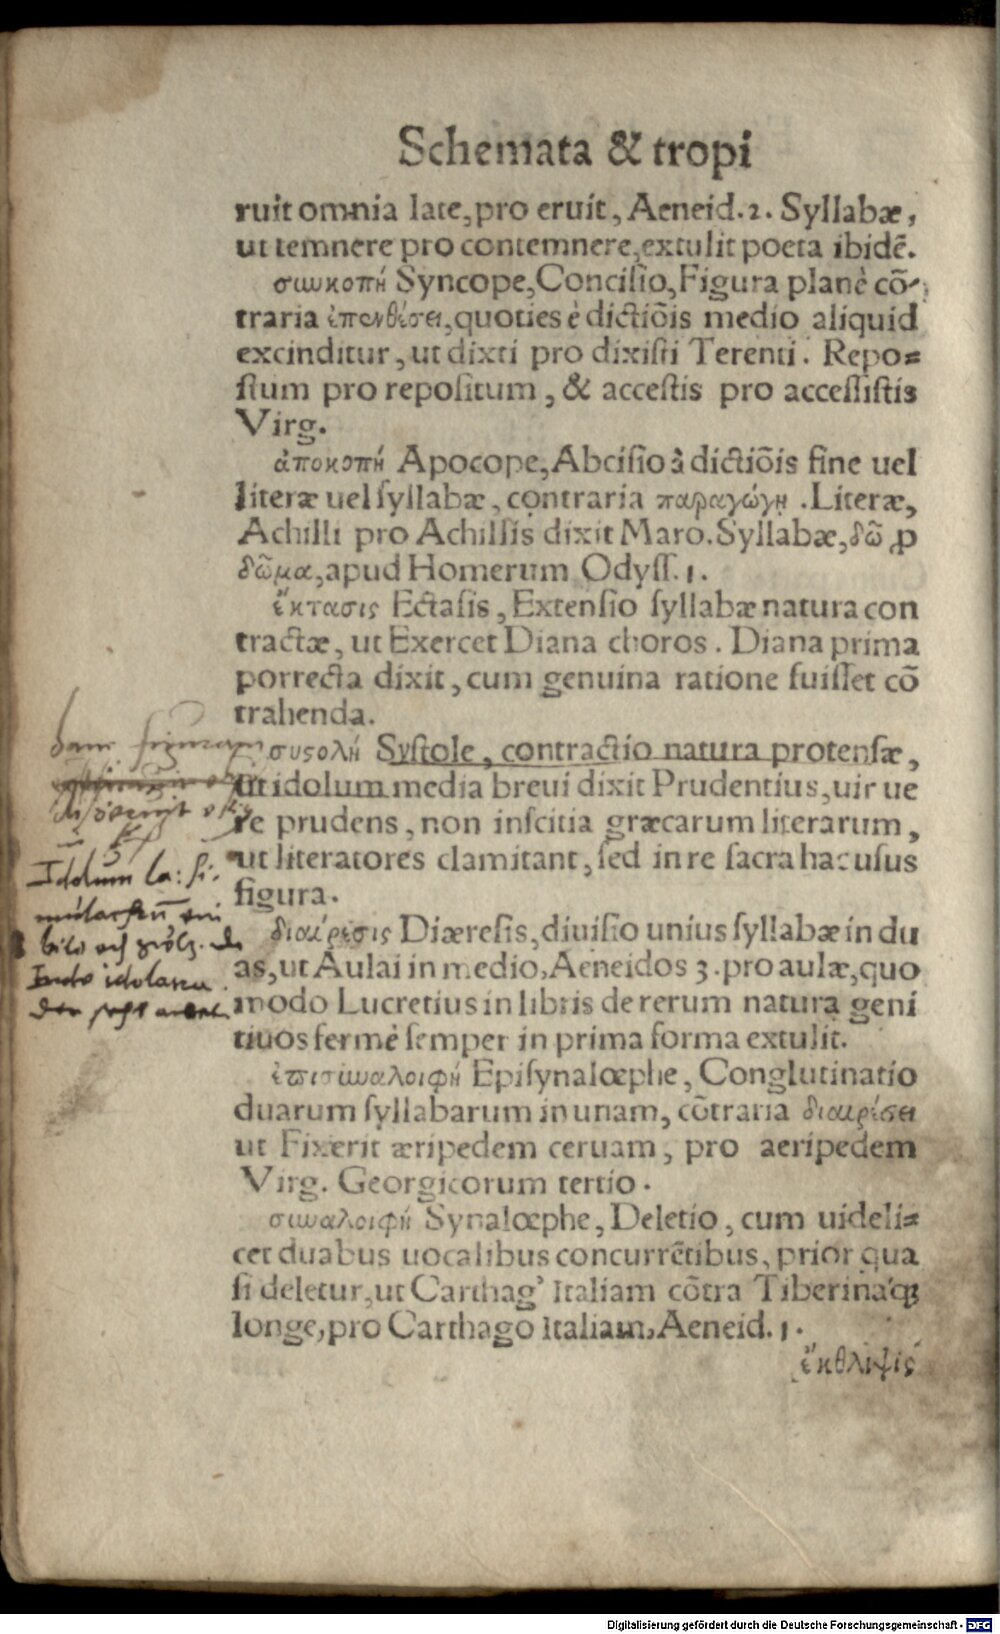 Schemata & tropi
ruit omnia late, pro eruit, Aeneid.2. Syllabæ,
ut temnere pro contemnere, extulit poeta ibidē.
συγκοπή Syncope, Concisio, Figura planè cō-
traria ἐπενθέσει, quoties è dictiōis medio aliquid
excinditur, ut dixti pro dixisti Terenti. Repo=
stum pro repositum, & accestis pro accessistis
Virg.
ἀποκοπή Apocope, Abcisio à dictiōis fine uel
literæ uel syllabæ, contraria παραγώγῃ. Literæ,
Achilli pro Achillis dixit Maro. Syllabæ, δῶ ꝓ
δῶμα, apud Homerum Odyss.1.
ἔκτασις Ectasis, Extensio syllabæ natura con
tractæ, ut Exercet Diana choros. Diana prima
porrecta dixit, cum genuina ratione fuisset cō
trahenda.
συϛολή Systole, contractio natura protensæ,
ut idolum media breui dixit Prudentius, uir ue
re prudens, non inscitia græcarum literarum,
ut literatores clamitant, sed in re sacra hac usus
figura.
Idolum la: si-
mulachrū
διαίρεσις Diæresis, diuisio unius syllabæ in du
as, ut Aulai in medio, Aeneidos 3. pro aulæ, quo
modo Lucretius in libris de rerum natura geni
tiuos fermè semper in prima forma extulit.
ἐπισυναλοιφή Episynalœphe, Conglutinatio
duarum syllabarum in unam, cōtraria διαιρέσει
ut Fixerit æripedem ceruam, pro aeripedem
Virg. Georgicorum tertio.
συναλοιφή Synalœphe, Deletio, cum uideli=
cet duabus uocalibus concurrētibus, prior qua
si deletur, ut Carthag' Italiam cōtra Tiberina'q;
longe, pro Carthago Italiam, Aeneid.1.
ἔκθλιψις
Digitalisierung gefördert durch die Deutsche Forschungsgemeinschaft - DFG